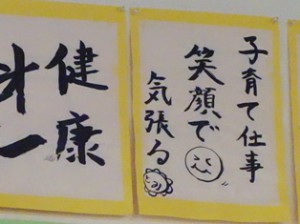 子育て仕事
笑顔で
気張る
健康
一